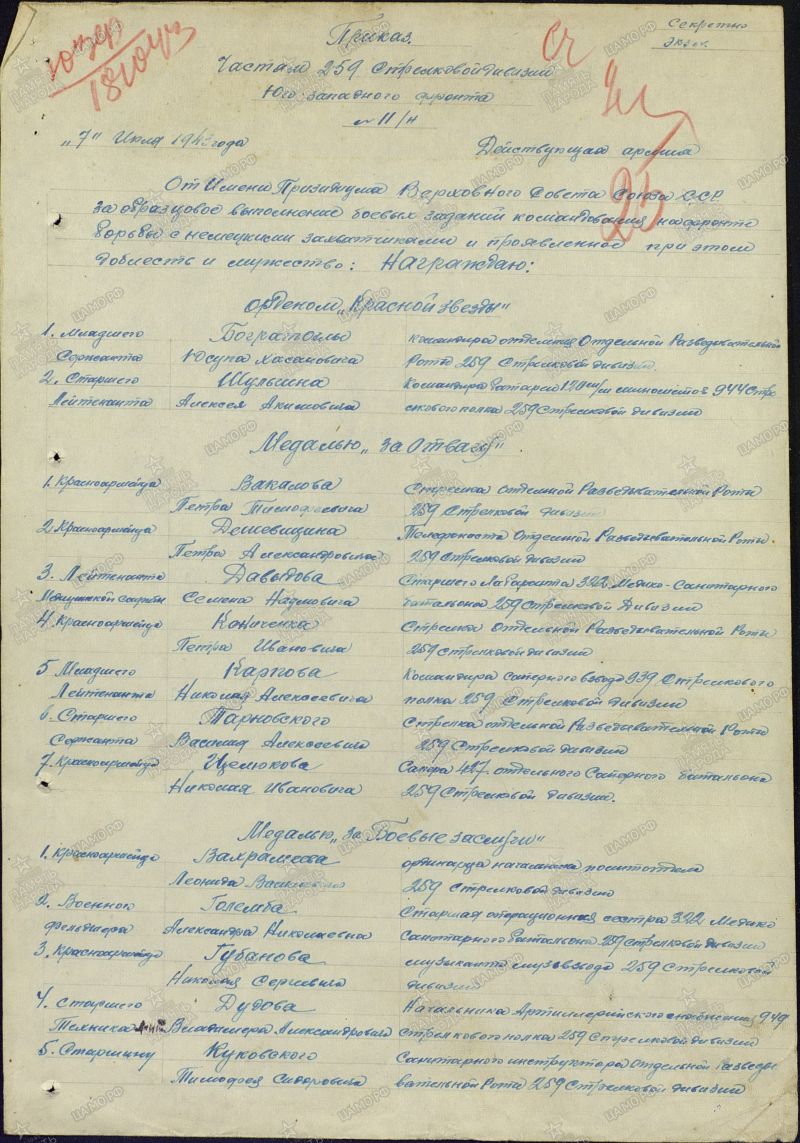 Секретно
Экз №
Приказ
Частям 259 Стрелковой дивизии
Юго-западного фронта
№ 11/н
"7" Июля 1943 года Действующая армия
От Имени Призидиума Верховного Совета Союза ССР
за образцовое выполнение боевых заданий командования на фронте
борьбы с немецкими захватчиками и проявленное при этом
доблесть и мужество: Награждаю:
орденом „Красной звезды"
1. Младшего командира отделения Отдельной Разведывательной
Сержанта Юсупа Хасановича Роты 259 Стрелковой дивизии.
2. Старшего Шульгина Командира батареи 120 м/м минометов 944 Стре
Лейтенанта Алексея Акимовича лкового полка 259 Стрелковой дивизии
Медалью „за Отвагу"
1. Красноармейца Вакалова Стрелка отдельной Разведывательной Роты
Петра Тимофеевича 259 Стрелковой дивизии
2. Красноармейца Дешевицина Телефониста Отдельной Разведывательной Роты
Петра Александровича 259 Стрелковой дивизии
3. Лейтенанта Давыдова Старшего 322 Медико-Санитарного
Медицинской службы Семена Наумовича батальона 259 Стрелковой Дивизии
4. Красноармейца Каниченка Стрелка Отдельной Разведывательной Роты
Петра Ивановича 259 Стрелковой дивизии
5 Младшего Карпова Командира саперного взвода 939 Стрелкового
Лейтенанта Николая Алексеевича полка 259 Стрелковой дивизии
6. Старшего Тарновского Стрелка отдельной Разведывательной Роты
Сержанта Василия Алексеевича 259 Стрелковой дивизии
7. Красноармейца Щелокова Сапера 427 отдельного Саперного батальона
Николая Ивановича 259 Стрелковой дивизии.
Медалью „за Боевые заслуги"
1. Красноармейца Вахрамеева ординарца начальника политотдела
Леонида Васильевича 259 Стрелковой дивизии
2. Военной Големба Старшая операционная сестра 322 Медико
фельдшера Александра Николаевна Санитарного батальона 259 Стрелковой дивизии
3. Красноармейца Губанова музыканта музвзвода 259 Стрелковой
Николая Сергеевича дивизии
4. Старшего Дудова Начальника Артиллерийского снабжения 949
Техника Владимера Александровича Стрелкового полка 259 Стрелковой дивизии
5. Старшину Куковского Санитарного инструктора Отдельной Разведы
Тимофея Сидоровича вательной Роты 259 Стрелковой дивизии
ЦАМО.РФ
ПАМЯТЬ НАРОДА